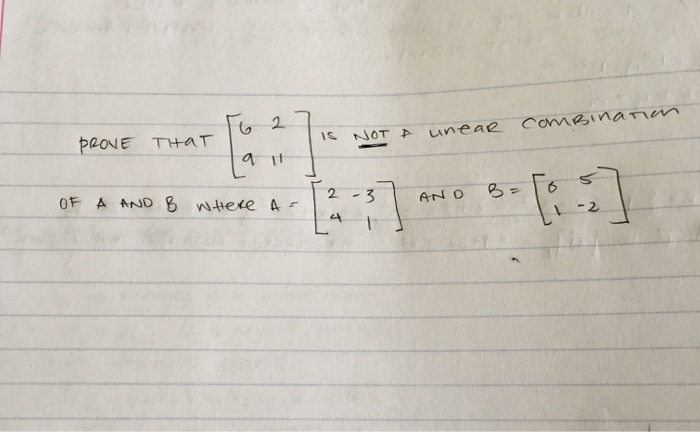 PROVE THAT [6 2 9 11] IS NOT A LINEAR COMBINATION
OF A AND B WHERE A = [2 -3 4 1] AND B = [0 5 1 -2]